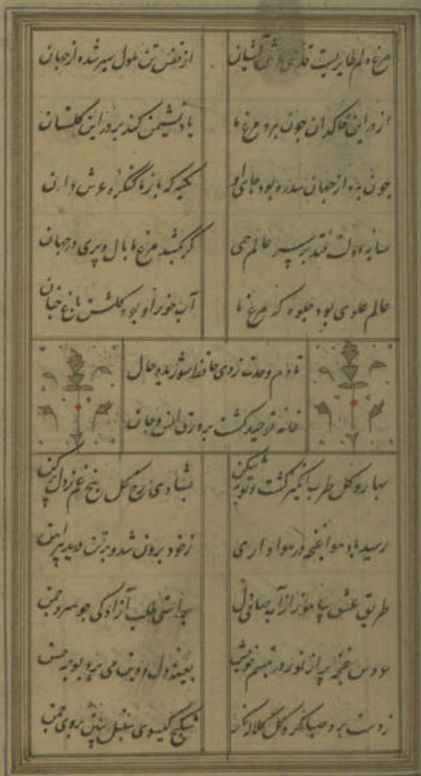 مرغ دلم طایریست قدسی عرش آشیان از قفس تن ملول سیر شده از جهان
از در این خاکدان چون پرد مرغ ما باز نشیمن کند بر در این گلستان
چون پرد از جهان سدره بود جای او تکیه که باز ما کنگره عرش دان
سایه دولت فتد بر سر عالم همی گر کشد مرغ ما بال و پری در جهان
عالم علوی بود جلوه که مرغ ما آب خور او بود گلشن باغ جنان
تا دم وحدت زدی حافظ شوریده حال
خامه توحید کش بر ورق انس و جان
بهار و گل طرب انگیز گشت و توبه شکن بشادی رخ گل بیخ غم ز دل برکن
رسید باد صبا غنچه در هواداری ز خود برون شد و بر تن درید پیراهن
طریق عشق بیاموز از آب صافی دل براستی طلب آزادگی چو سرو چمن
عروس غنچه پر از زیور و تبسم خوش بعینه دل و دین می برد بوجه حسن
ز دست برد صبا گرد گل کلاله نگر شکنج گیسوی سنبل ببین بروی سمن